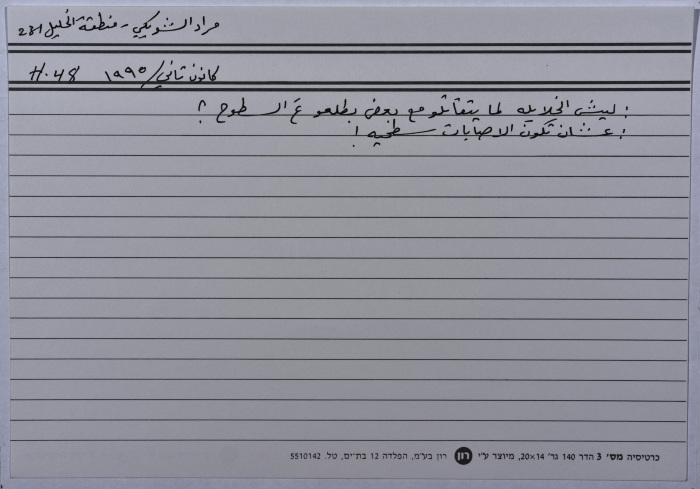 مراد الشويكي - منطقة الخليل 231
كانون ثاني/١٩٩٥ H.48
: ليش الخلايله لما يتقاتلو مع بعض بطلعو عَ السطوح ؟
: عشان تكون الاصابات سطحيه !
כרטיסיה מס׳ 3 הדר 140 גר׳ 20×14, מיוצר ע״י רון רון בע״מ, הפלדה 12 בת־ים, טל. 5510142